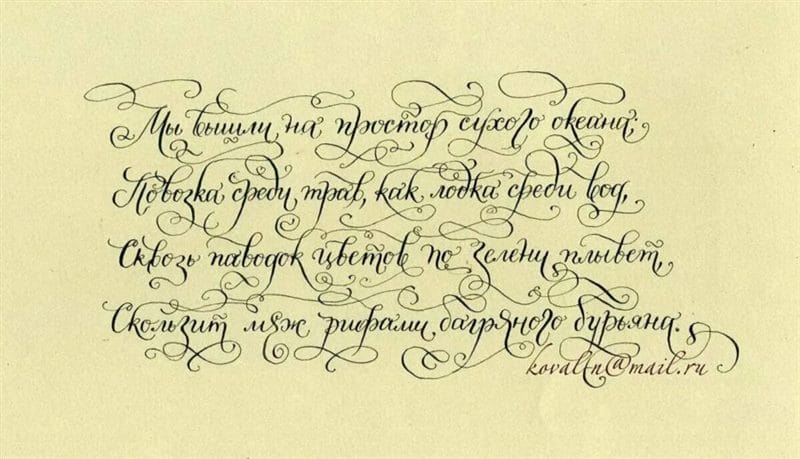 Мы вышли на простор сухого океана;
Повозка среди трав, как лодка среди вод,
Сквозь паводок цветов по зелени плывет,
Скользит меж рифами багряного бурьяна.
kovaltn@mail.ru